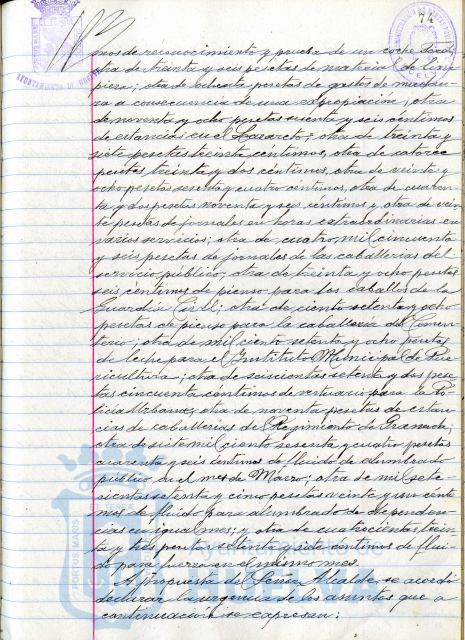 74
nos de reconocimiento y prueba de un coche
otra de treinta y seis pesetas de material de lim
pieza; otra de pesetas de gastos de mudan
za a consecuencia de una expropiación; otra
de noventa y ocho pesetas sesenta y seis centimos
de estancias en el Lazareto; otra de treinta y
siete pesetas treinta centimos, otra de catorce
pesetas treinta y dos centimos, otra de veinte y
ocho pesetas sesenta y cuatro centimos, otra de cuaren
ta y dos pesetas noventa y seis centimos y otra de vein
te pesetas de jornales en horas extraordinarias en
varios servicios; otra de cuatro mil cincuenta
y seis pesetas de jornales de las caballerias del
servicio público; otra de treinta y ocho pesetas
seis centimos de pienso para los caballos de la
Guardia Civil; otra de ciento setenta y ocho
pesetas de pienso para la caballeria del Cemen
terio; otra de mil ciento setenta y ocho pesetas
de leche para el Instituto Municipal de Pue
ricultura; otra de seiscientas setenta y dos pese
tas cincuenta centimos de vestuario para la Po
licia Urbana; otra de noventa pesetas de estan
cias de caballerias del Regimiento de Granada;
otra de siete mil ciento sesenta y cuatro pesetas
cuarenta y seis centimos de fluido de alumbrado
público, en el mes de Marzo; otra de mil sete
cientas setenta y cinco pesetas veinte y un cente
mos de fluido para alumbrado de dependen
cias en igual mes; y otra de cuatrocientas trein
ta y tres pesetas ochenta y siete centimos de flui
do para fuerza en el mismo mes.
A propuesta del Señor Alcalde, se acordó
declarar la urgencia de los asuntos que a
continuación se expresan:
AYUNTAMIENTO DE HUELVA
PORTUS MARIS
Ayuntamiento de
HUELVA